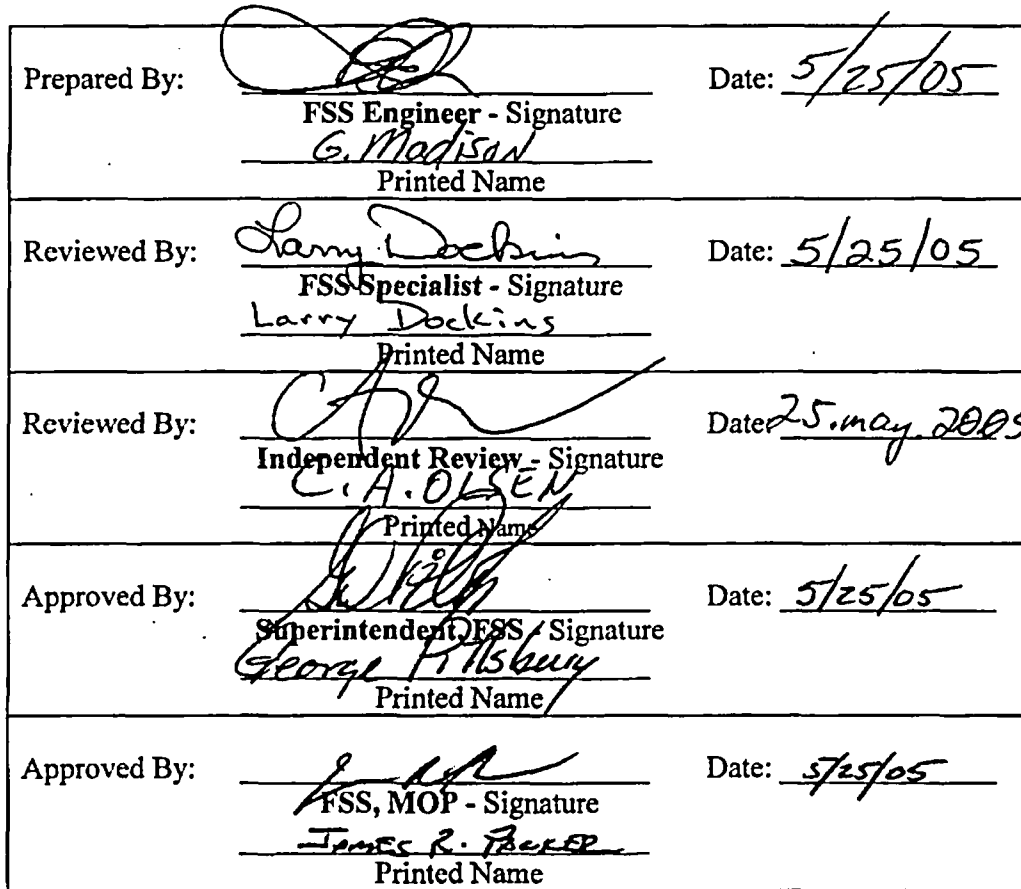 Prepared By: Date: 5/25/05
FSS Engineer - Signature
G. Madison
Printed Name
Reviewed By: Larry Dockins Date: 5/25/05
FSS Specialist - Signature
Larry Dockins
Printed Name
Reviewed By: Date: 25.may.2005
Independent Review - Signature
C. A. OLSEN
Printed Name
Approved By: Date: 5/25/05
Superintendent, FSS - Signature
George Pillsbury
Printed Name
Approved By: Date: 5/25/05
FSS, MOP - Signature
JAMES R. PACKER
Printed Name